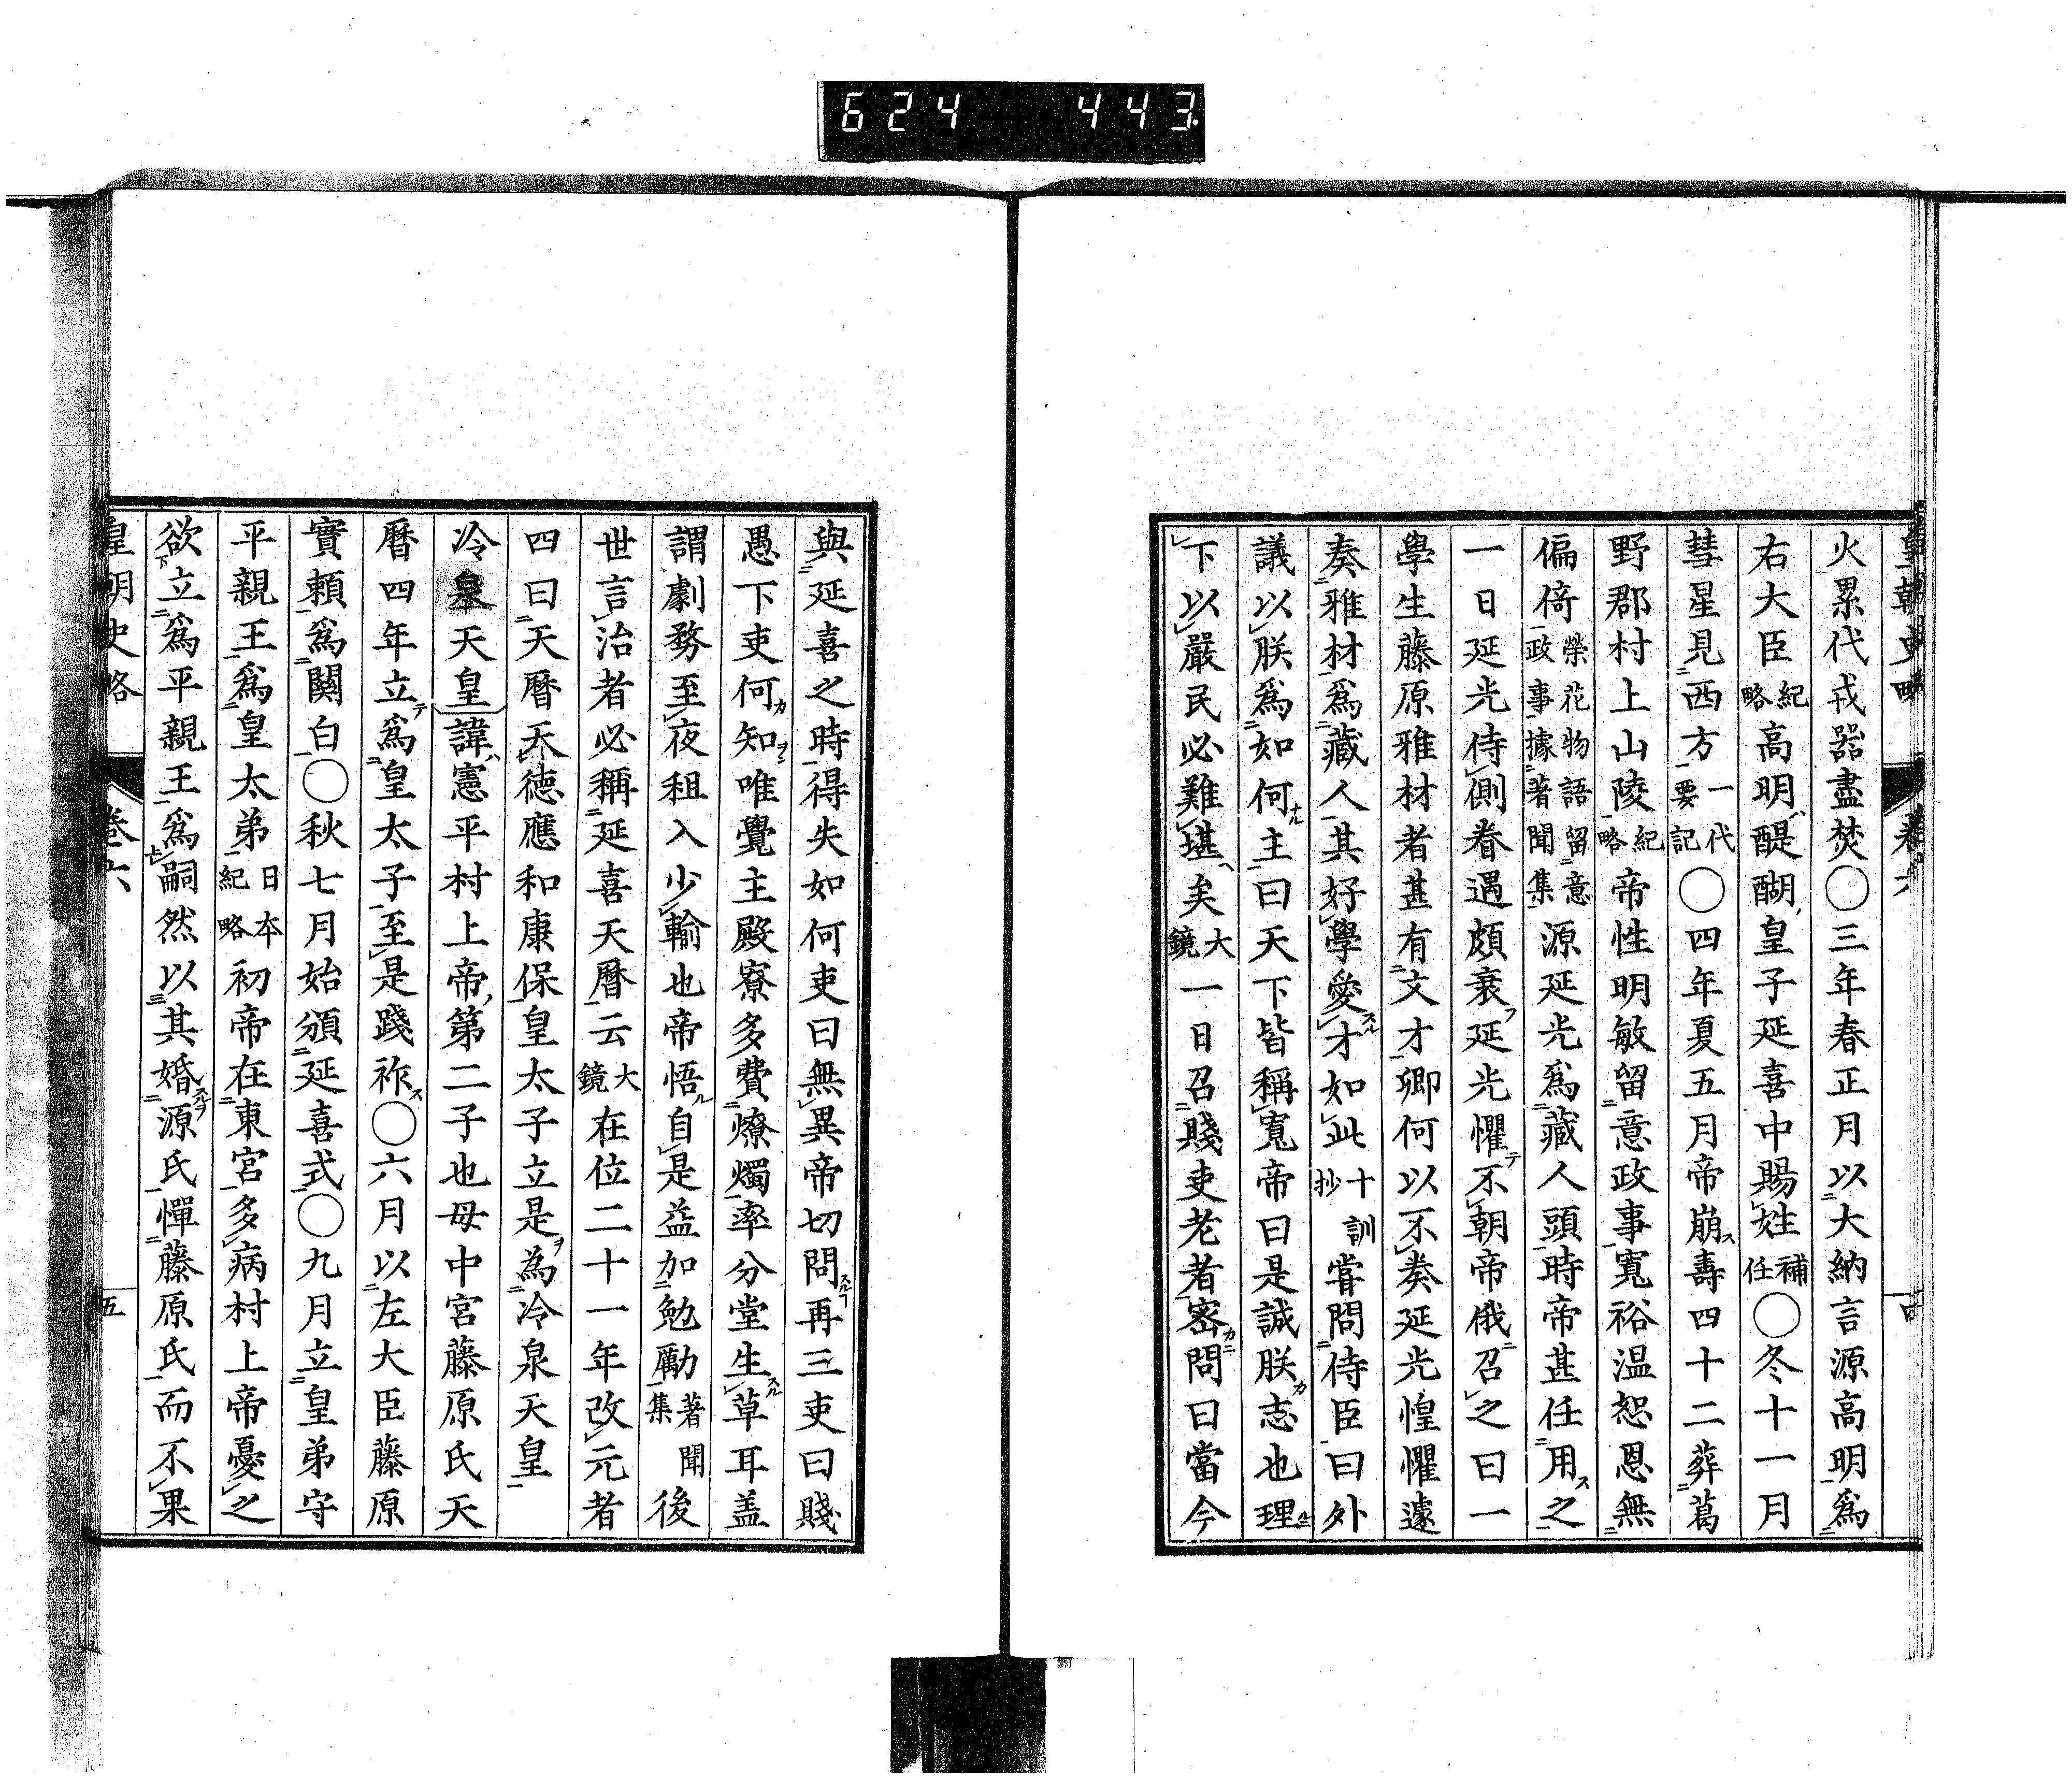 624 443
火累代戎器盡焚○三年春正月以大納言源高明爲
右大臣紀略高明醍醐皇子延喜中賜姓補任○冬十一月
彗星見西方一代要記○四年夏五月帝崩壽四十二葬葛
野郡村上山陵紀略帝性明敏留意政事寬裕温恕恩無
偏倚榮花物語留意政事據著聞集源延光爲藏人頭時帝甚任用之
一日延光侍側眷遇頗衰延光懼不朝帝俄召之曰一
學生藤原雅材者甚有文才卿何以不奏延光惶懼遽
奏雅材爲藏人其好學愛才如此十訓抄嘗問侍臣曰外
議以朕爲如何主曰天下皆稱寬帝曰是誠朕志也理
下以嚴民必難堪矣大鏡一日召賤吏老者密問曰當今
與延喜之時得失如何吏曰無異帝切問再三吏曰賤
愚下吏何知唯覺主殿寮多費燎燭率分堂生草耳盖
謂劇務至夜租入少輸也帝悟自是益加勉勵著聞集後
世言治者必稱延喜天曆云大鏡在位二十一年改元者
四曰天曆天德應和康保皇太子立是為冷泉天皇
冷泉天皇諱憲平村上帝第二子也母中宮藤原氏天
曆四年立爲皇太子至是踐祚○六月以左大臣藤原
實賴爲關白○秋七月始頒延喜式○九月立皇弟守
平親王爲皇太弟日本紀略初帝在東宮多病村上帝憂之
欲立爲平親王爲嗣然以其婚源氏憚藤原氏而不果
皇朝史略 卷六 五